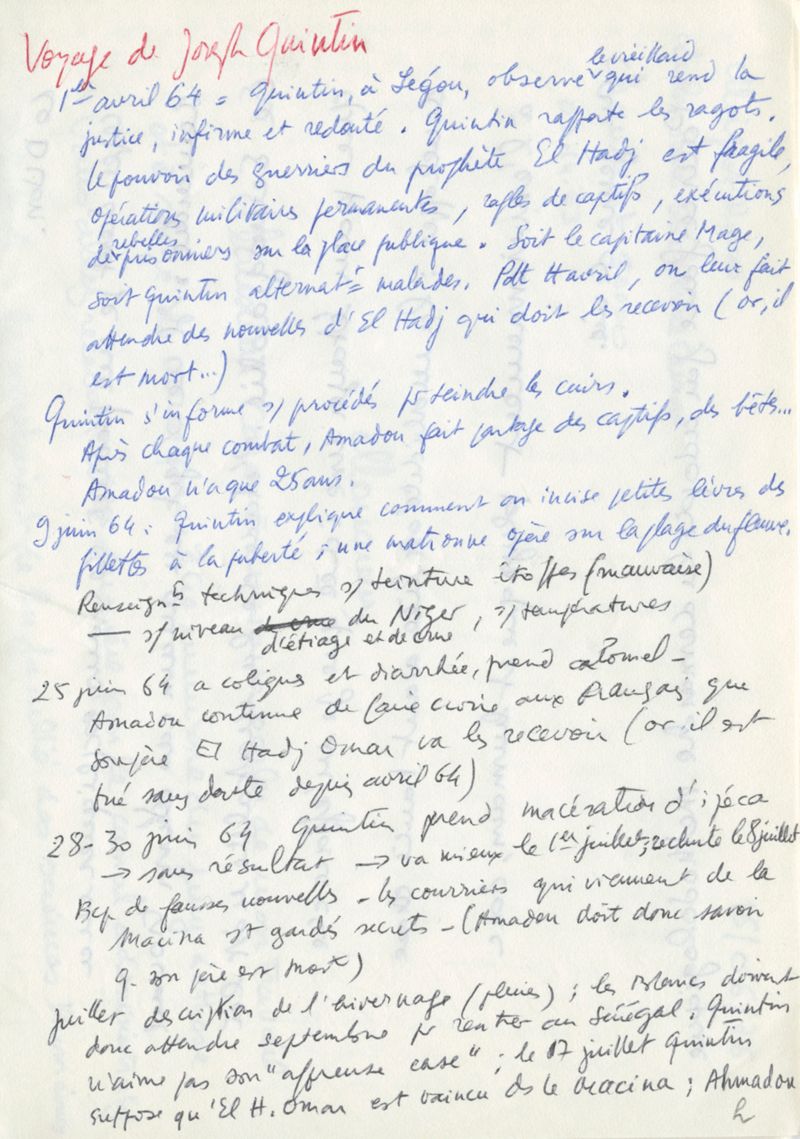 Voyage de Joseph Quintin
1er avril 64 = Quintin, à Ségou, observe le vieillard qui rend la
justice, infirme et redouté. Quintin rapporte les ragots.
Le pouvoir des guerriers du prophète El Hadj est fragile,
opérations militaires permanentes, rafles de captifs, exécutions
des prisonniers rebelles sur la place publique. Soit le capitaine Mage,
soit Quintin alternatt malades. Pdt avril, on leur fait
attendre des nouvelles d'El Hadj qui doit les recevoir (or, il
est mort...)
Quintin s'informe s/ procédés pr teindre les cuirs.
Après chaque combat, Amadou fait partage des captifs, des bêtes...
Amadou n'a que 25 ans.
9 juin 64 : Quintin explique comment on incise petites lèvres des
fillettes à la puberté ; une matronne opère sur la plage du fleuve.
Renseignts techniques s/ teinture étoffes (mauvaise)
— s/ niveau d'étiage et de crue du Niger, s/ températures
25 juin 64 a coliques et diarrhée, prend calomel -
Amadou continue de faire croire aux Français que
son père El Hadj Omar va les recevoir (or il est
tué sans doute depuis avril 64)
28-30 juin 64 Quintin prend macération d'ipéca
→ sans résultat → va mieux le 1er juillet ; rechute le 8 juillet
Bcp de fausses nouvelles - les courriers qui viennent de la
Macina st gardés secrets - (Amadou doit donc savoir
q. son père est mort)
juillet description de l'hivernage (pluies) ; les Blancs doivent
donc attendre septembre pr rentrer au Sénégal. Quintin
n'aime pas son "affreuse case" ; le 17 juillet Quintin
suppose qu'El H. Omar est vaincu ds le Macina ; Ahmadou